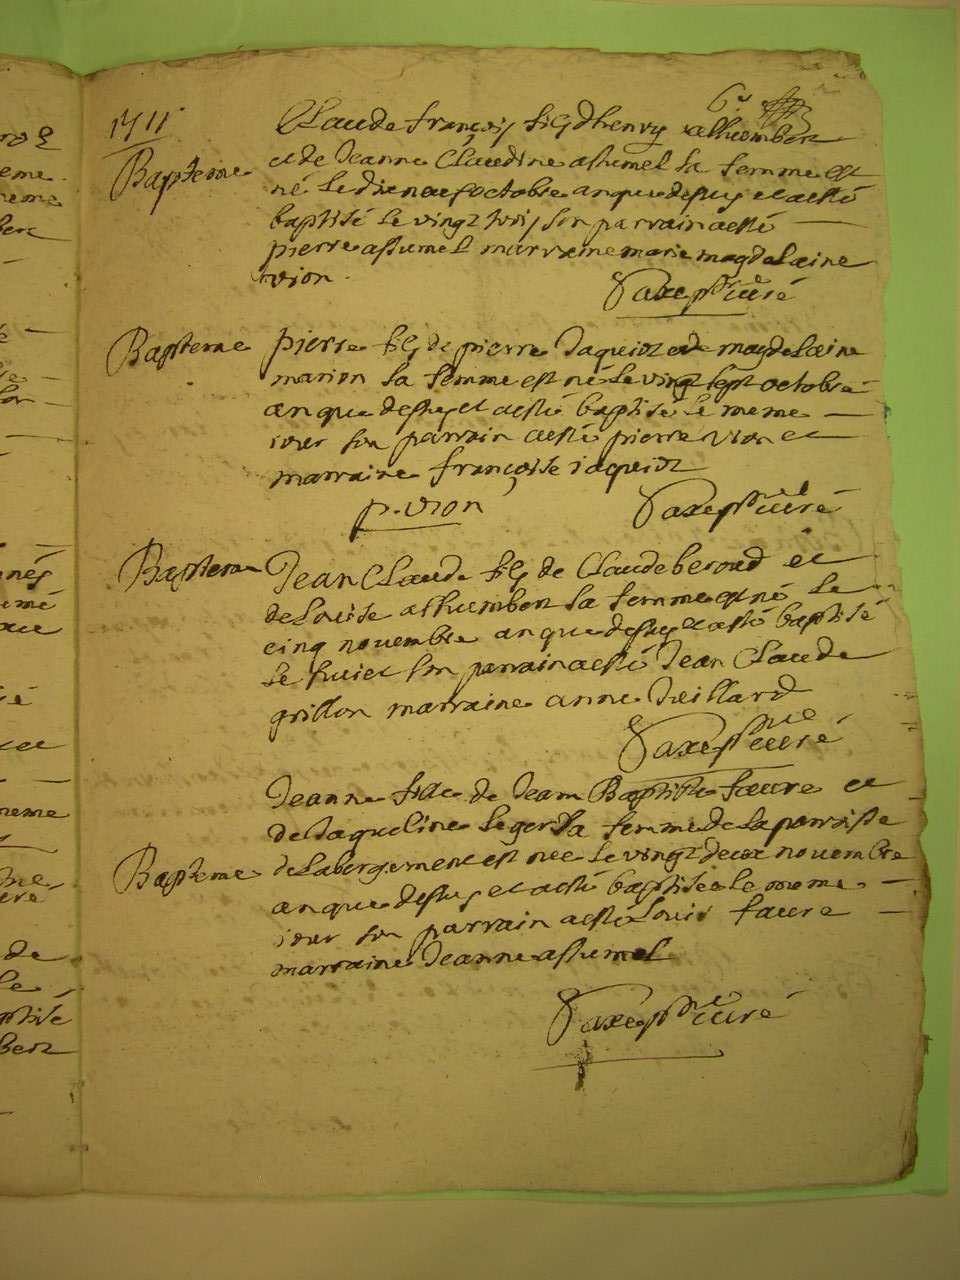 1711
Bapteme
Claude françois fils dhenry athumbert
et de Jeanne Claudine assumel sa femme est
né le dix neuf octobre an que dessus et a esté
baptisé le vingt trois son parrain a esté
pierre assumel marraine marie magdelaine
vion.
curé
Bapteme
pierre fils de pierre Jaquiot et de magdelaine
marion sa femme est né le vingt sept octobre
an que dessus et a esté baptisé le meme
iour son parrain a esté pierre vion et
marraine françoise iaquiot
p. vion
curé
Bapteme
Jean Claude fils de Claude beroud et
de Louise athumbert sa femme est né le
cinq novembre an que dessus et a esté baptisé
le huict son parrain a esté Jean Claude
grillon marraine anne Vuillard
curé
Bapteme
Jeanne fille de Jean Baptiste faure et
de Jaqueline leger sa femme de la parroisse
de labergement est nee le vingt deux novembre
an que dessus et a esté baptisee le meme
iour son parrain a esté Louis faure
marraine Jeanne assumel
curé